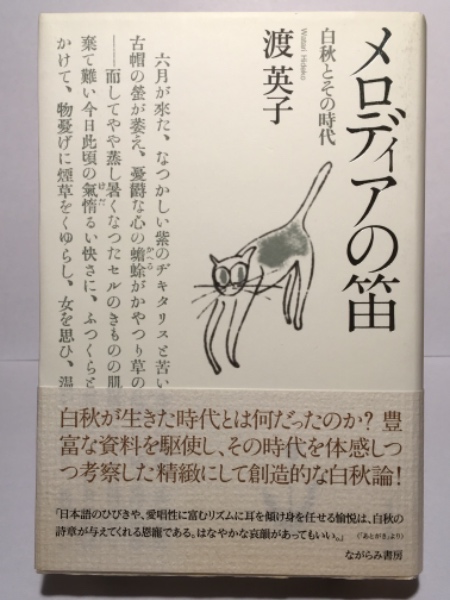 メロディアの笛
白秋とその時代
渡 英子
Watari Hideko
六月が來た、なつかしい紫のヂキタリスと苦い
古帽の螢が萎え、憂欝な心の蟾蜍がかやつり草の
かへる
――而してやや蒸し暑くなつたセルのきものの肌
棄て難い今日此頃の氣惰るい快さに、ふつくらと
けだ
かけて、物憂げに煙草をくゆらし、女を思ひ、温
白秋が生きた時代とは何だったのか? 豊
富な資料を駆使し、その時代を体感しつ
つ考察した精緻にして創造的な白秋論!
「日本語のひびきや、愛唱性に富むリズムに耳を傾け身を任せる愉悦は、白秋の
詩章が与えてくれる恩寵である。はなやかな哀韻があってもいい。」
(「あとがき」より)
ながらみ書房